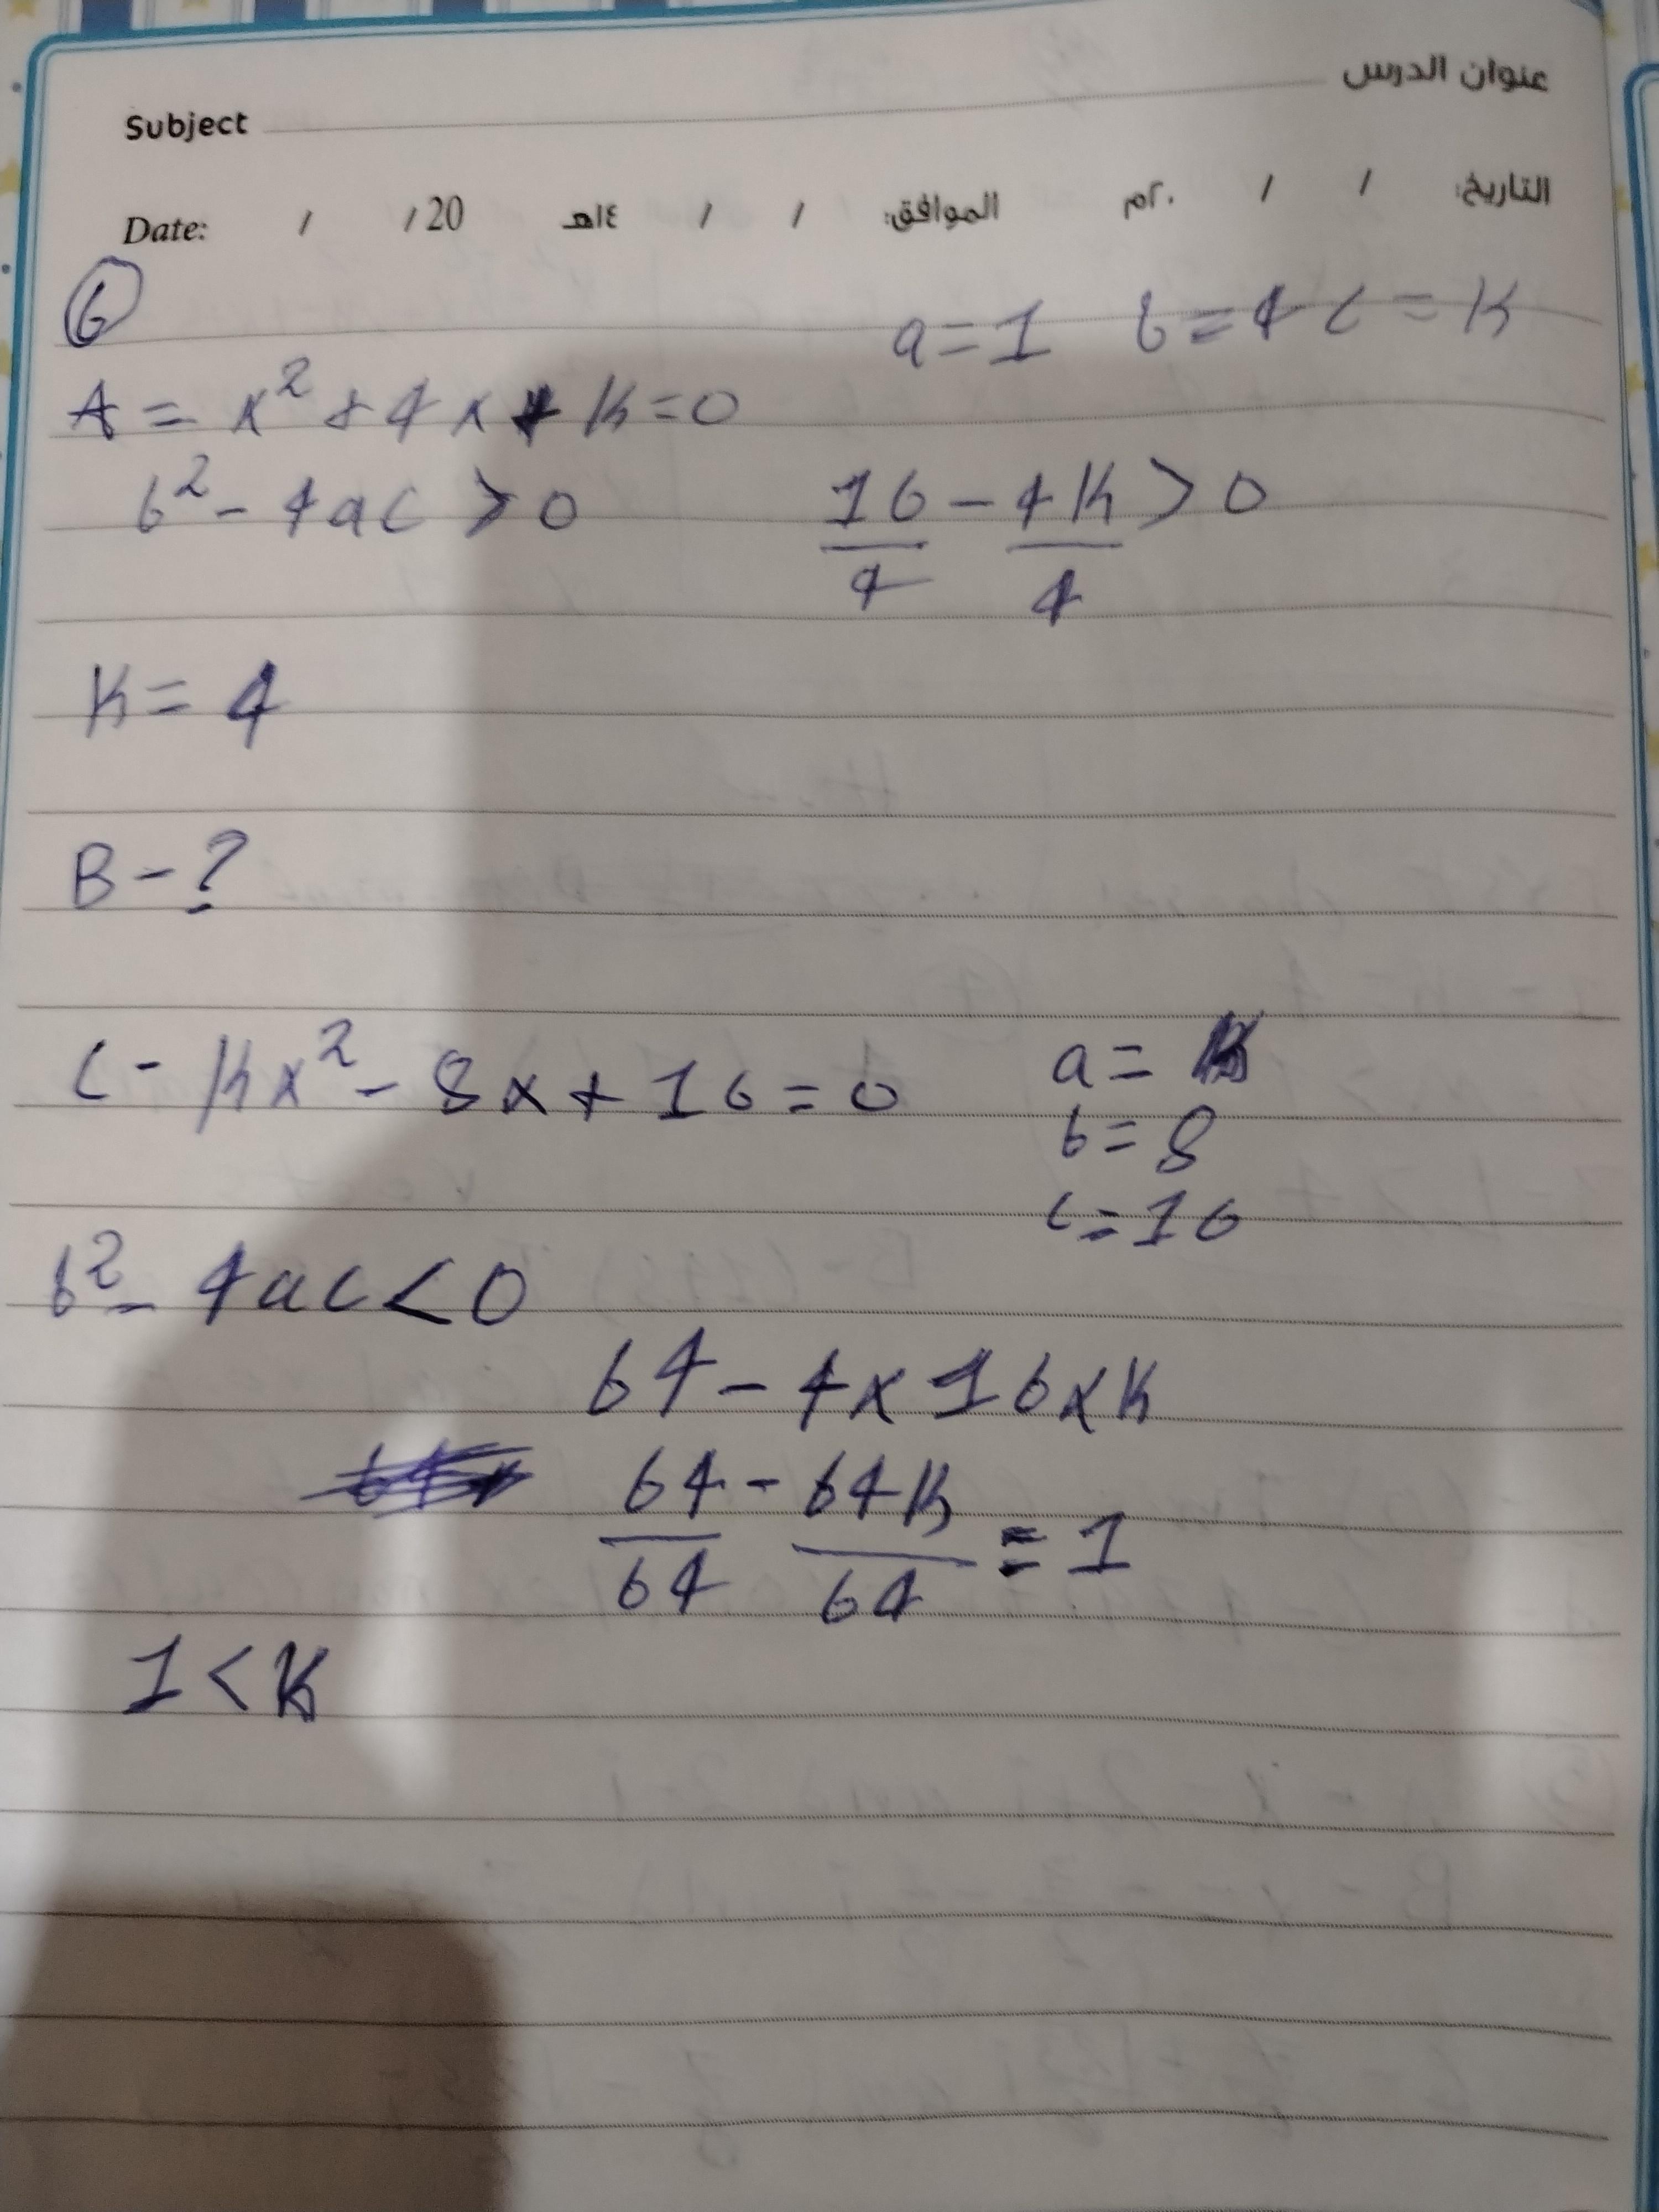 عنوان الدرس
Subject
التاريخ: / / ٢٠م الموافق: / / ١٤هـ Date: / / 20
6
a=1 b=4 c=K
A = x² + 4x + K=0
b² - 4ac > 0
16/4 - 4K/4 > 0
K= 4
B-?
C- Kx² - 8x + 16=0
a= K
b= 8
c=16
b² - 4ac < 0
64 - 4x16xK
64/64 - 64K/64 = 1
1 < K